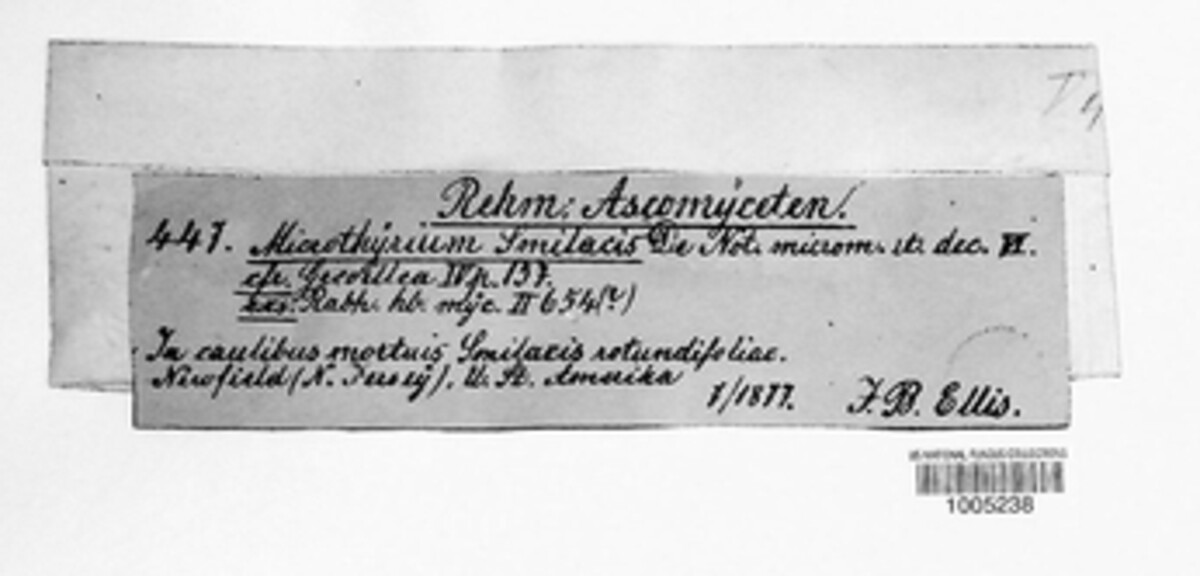 Rehm: Ascomÿceten.
447. Microthÿrium Smilacis De Not. microm. it. dec. VI.
cfr. Grevillea IV p. 137.
exs. Rabh. hb. mÿc. II 654 (?)
In caulibus mortuis Smilacis rotundifoliae.
Newfield (N. Jersey), U. St. Amerika
7/1877. J. B. Ellis.
US NATIONAL FUNGUS COLLECTIONS
1005238